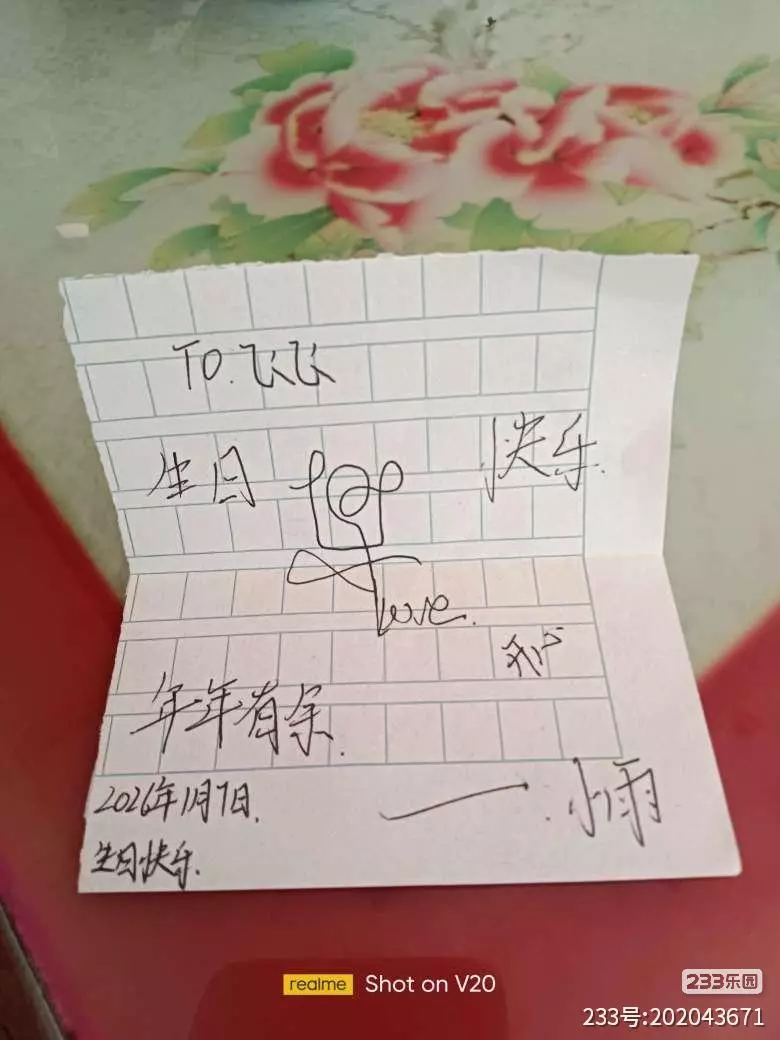 TO.飞飞
生日 快乐.
love.
年年有余.
2026年1月7日.
一.小雨
生日快乐.
realme Shot on V20
233乐园
233号:202043671